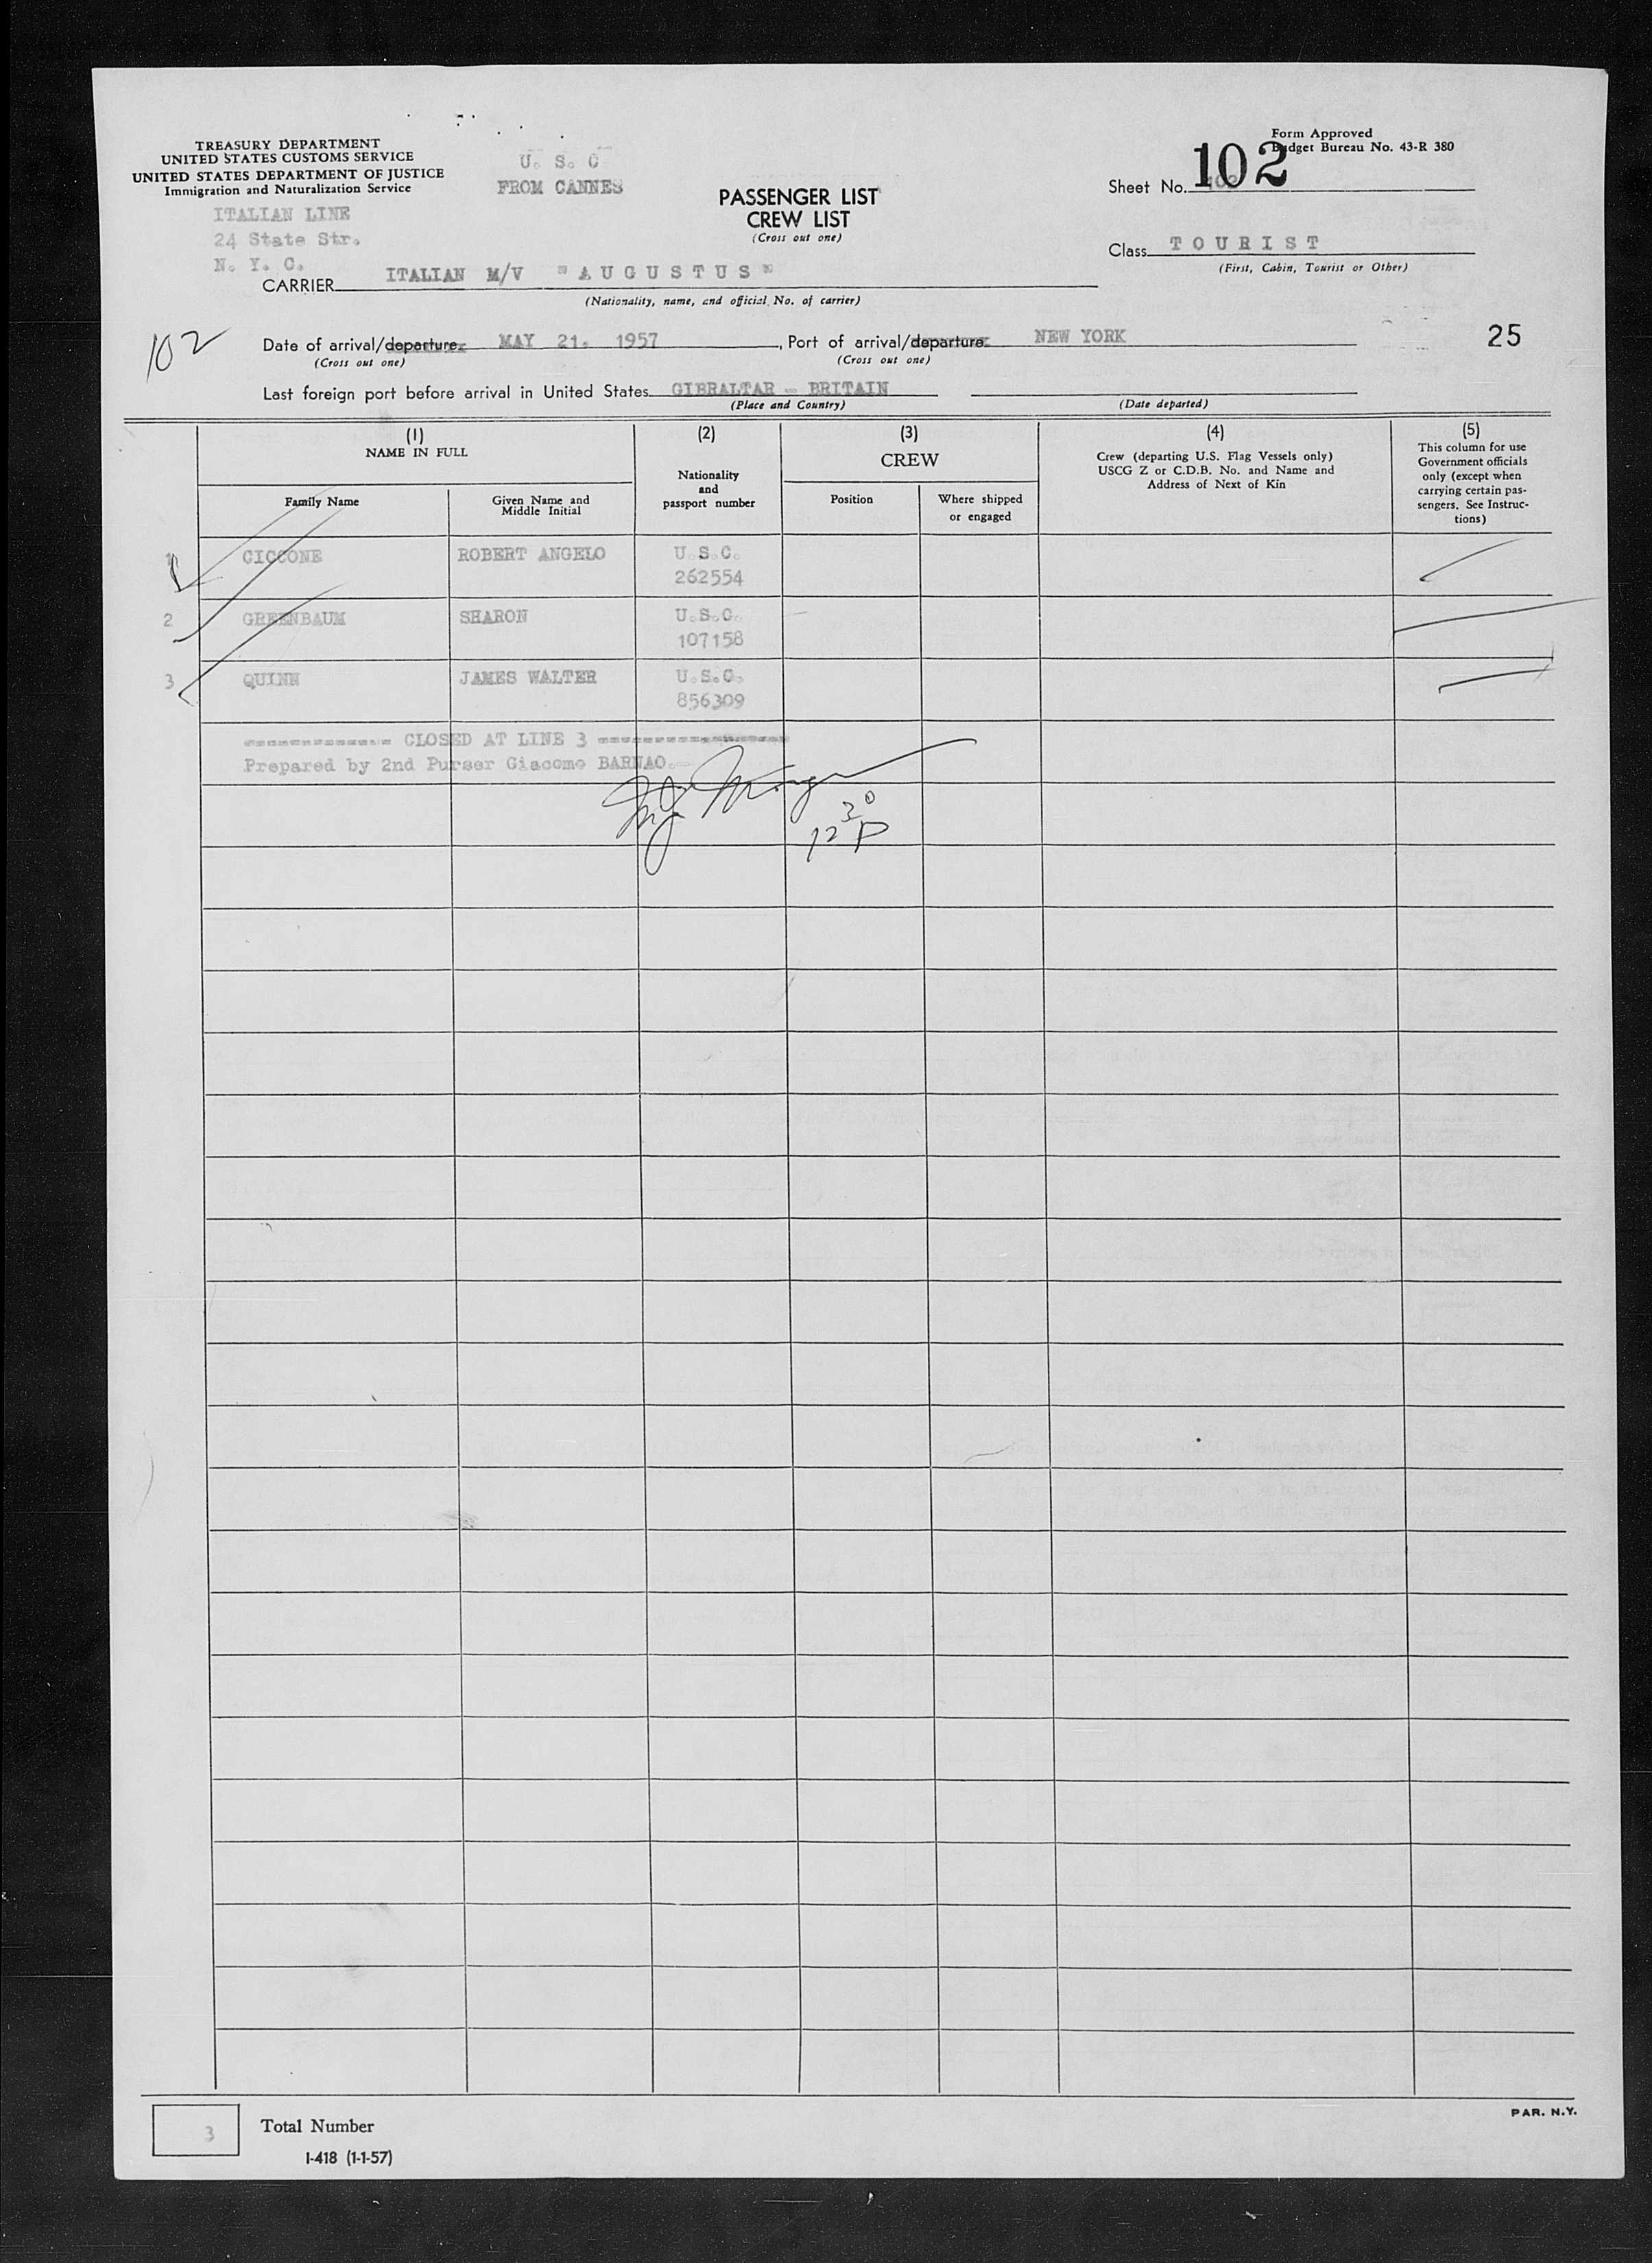 TREASURY DEPARTMENT
UNITED STATES CUSTOMS SERVICE
UNITED STATES DEPARTMENT OF JUSTICE
Immigration and Naturalization Service
ITALIAN LINE
24 State Str.
N. Y. C.
U. S. C
FROM CANNES
PASSENGER LIST
CREW LIST
(Cross out one)
Form Approved
Budget Bureau No. 43-R 380
Sheet No. 102
Class TOURIST
(First, Cabin, Tourist or Other)
CARRIER ITALIAN M/V "AUGUSTUS"
(Nationality, name, and official No. of carrier)
102
Date of arrival/departure MAY 21. 1957, Port of arrival/departure NEW YORK
(Cross out one) (Cross out one)
25
Last foreign port before arrival in United States GIBRALTAR - BRITAIN
(Place and Country) (Date departed)
(1) (2) (3) (4) (5)
NAME IN FULL
Family Name
Given Name and
Middle Initial
Nationality
and
passport number
CREW
Position
Where shipped
or engaged
Crew (departing U.S. Flag Vessels only)
USCG Z or C.D.B. No. and Name and
Address of Next of Kin
This column for use
Government officials
only (except when
carrying certain pas-
sengers. See Instruc-
tions)
1 CICCONE ROBERT ANGELO U.S.C.
262554
2 GREENBAUM SHARON U.S.C.
107158
3 QUINN JAMES WALTER U.S.C.
856309
------------- CLOSED AT LINE 3 -----------------
Prepared by 2nd Purser Giacomo BARNAO.-
12 30 P
3 Total Number
I-418 (1-1-57)
PAR. N.Y.